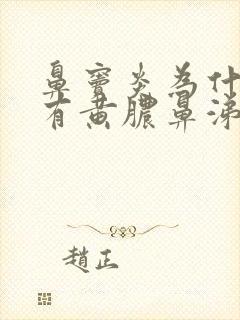 鼻窦炎为什
有黄脓鼻涕
趙正